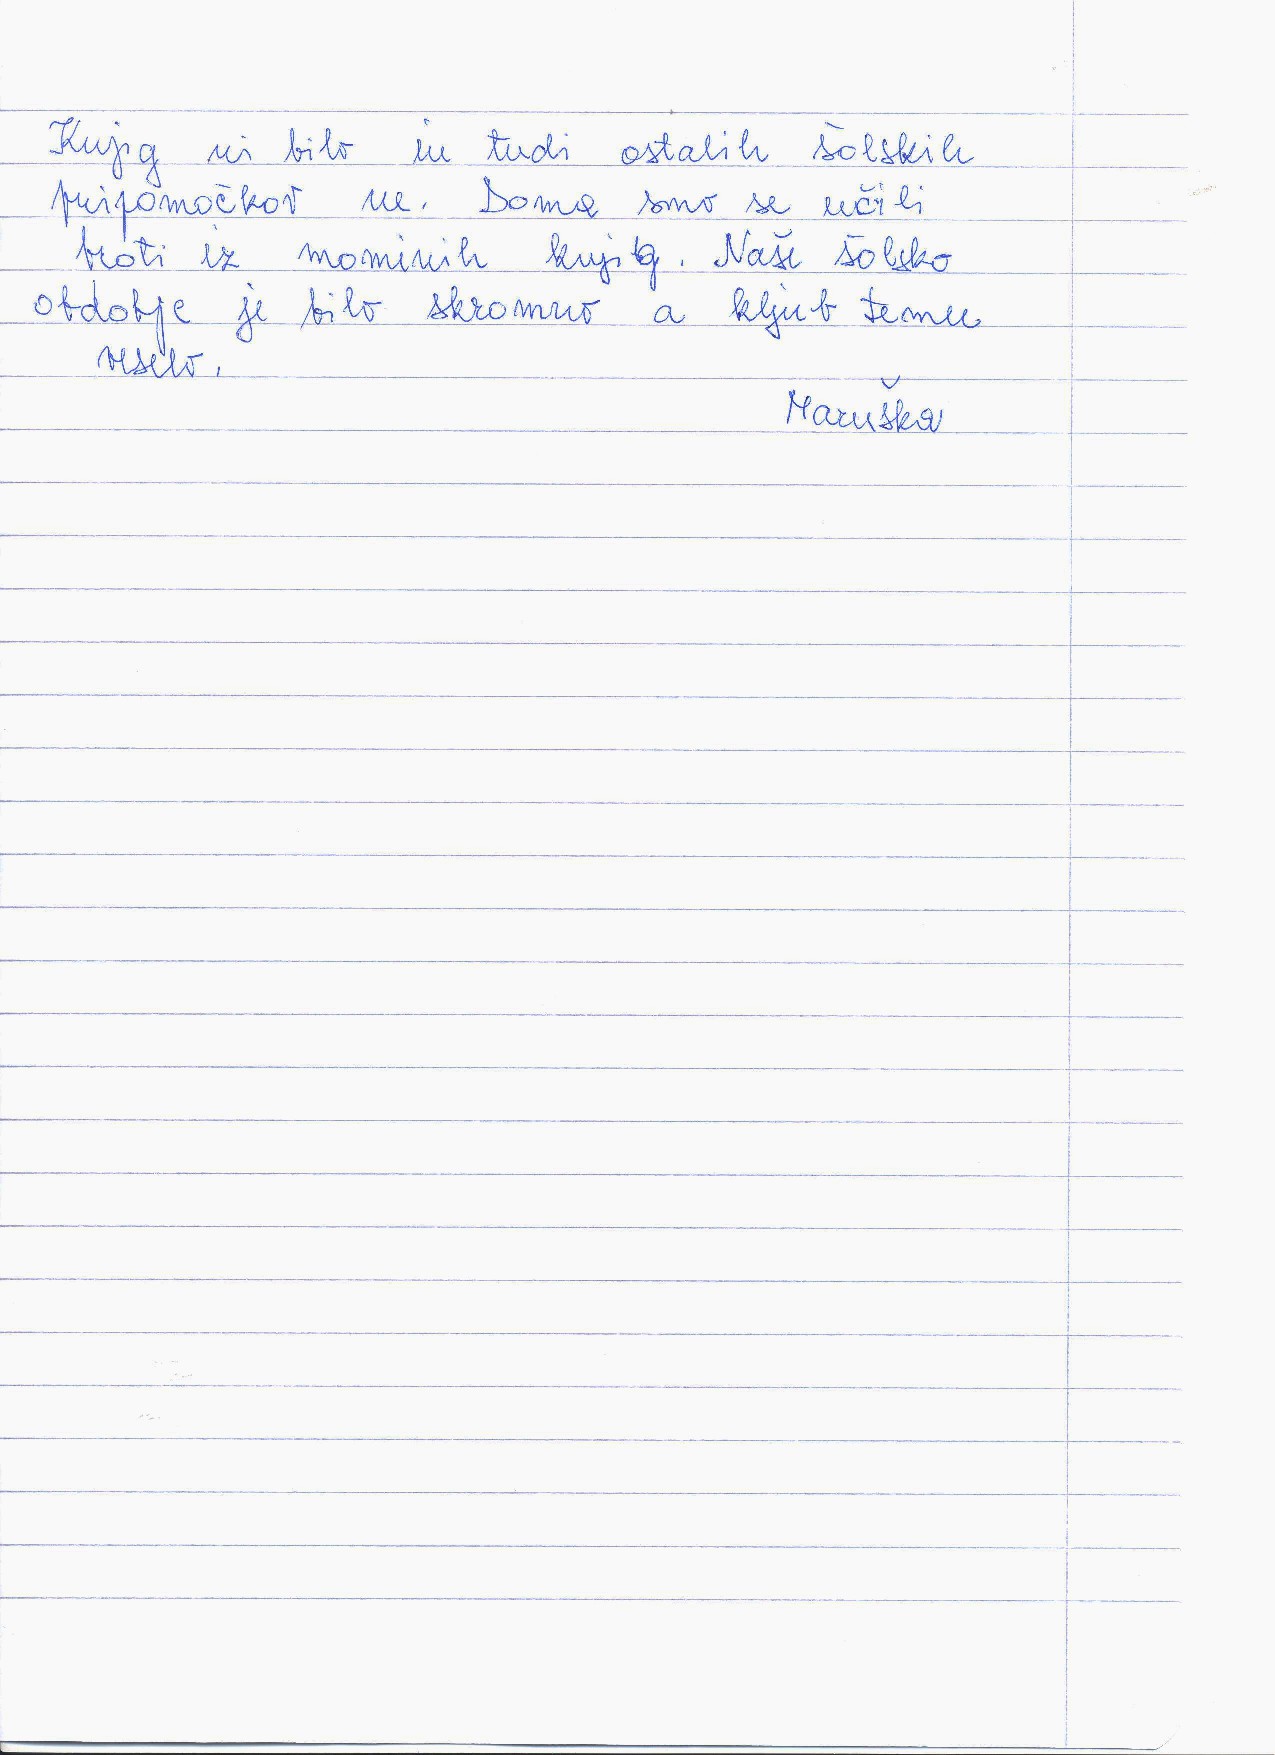 Knjig ni bilo in tudi ostalih šolskih
pripomočkov ne. Doma smo se učili
brati iz maminih knjig. Naše šolsko
obdobje je bilo skromno a kljub temu
veselo.
Maruška